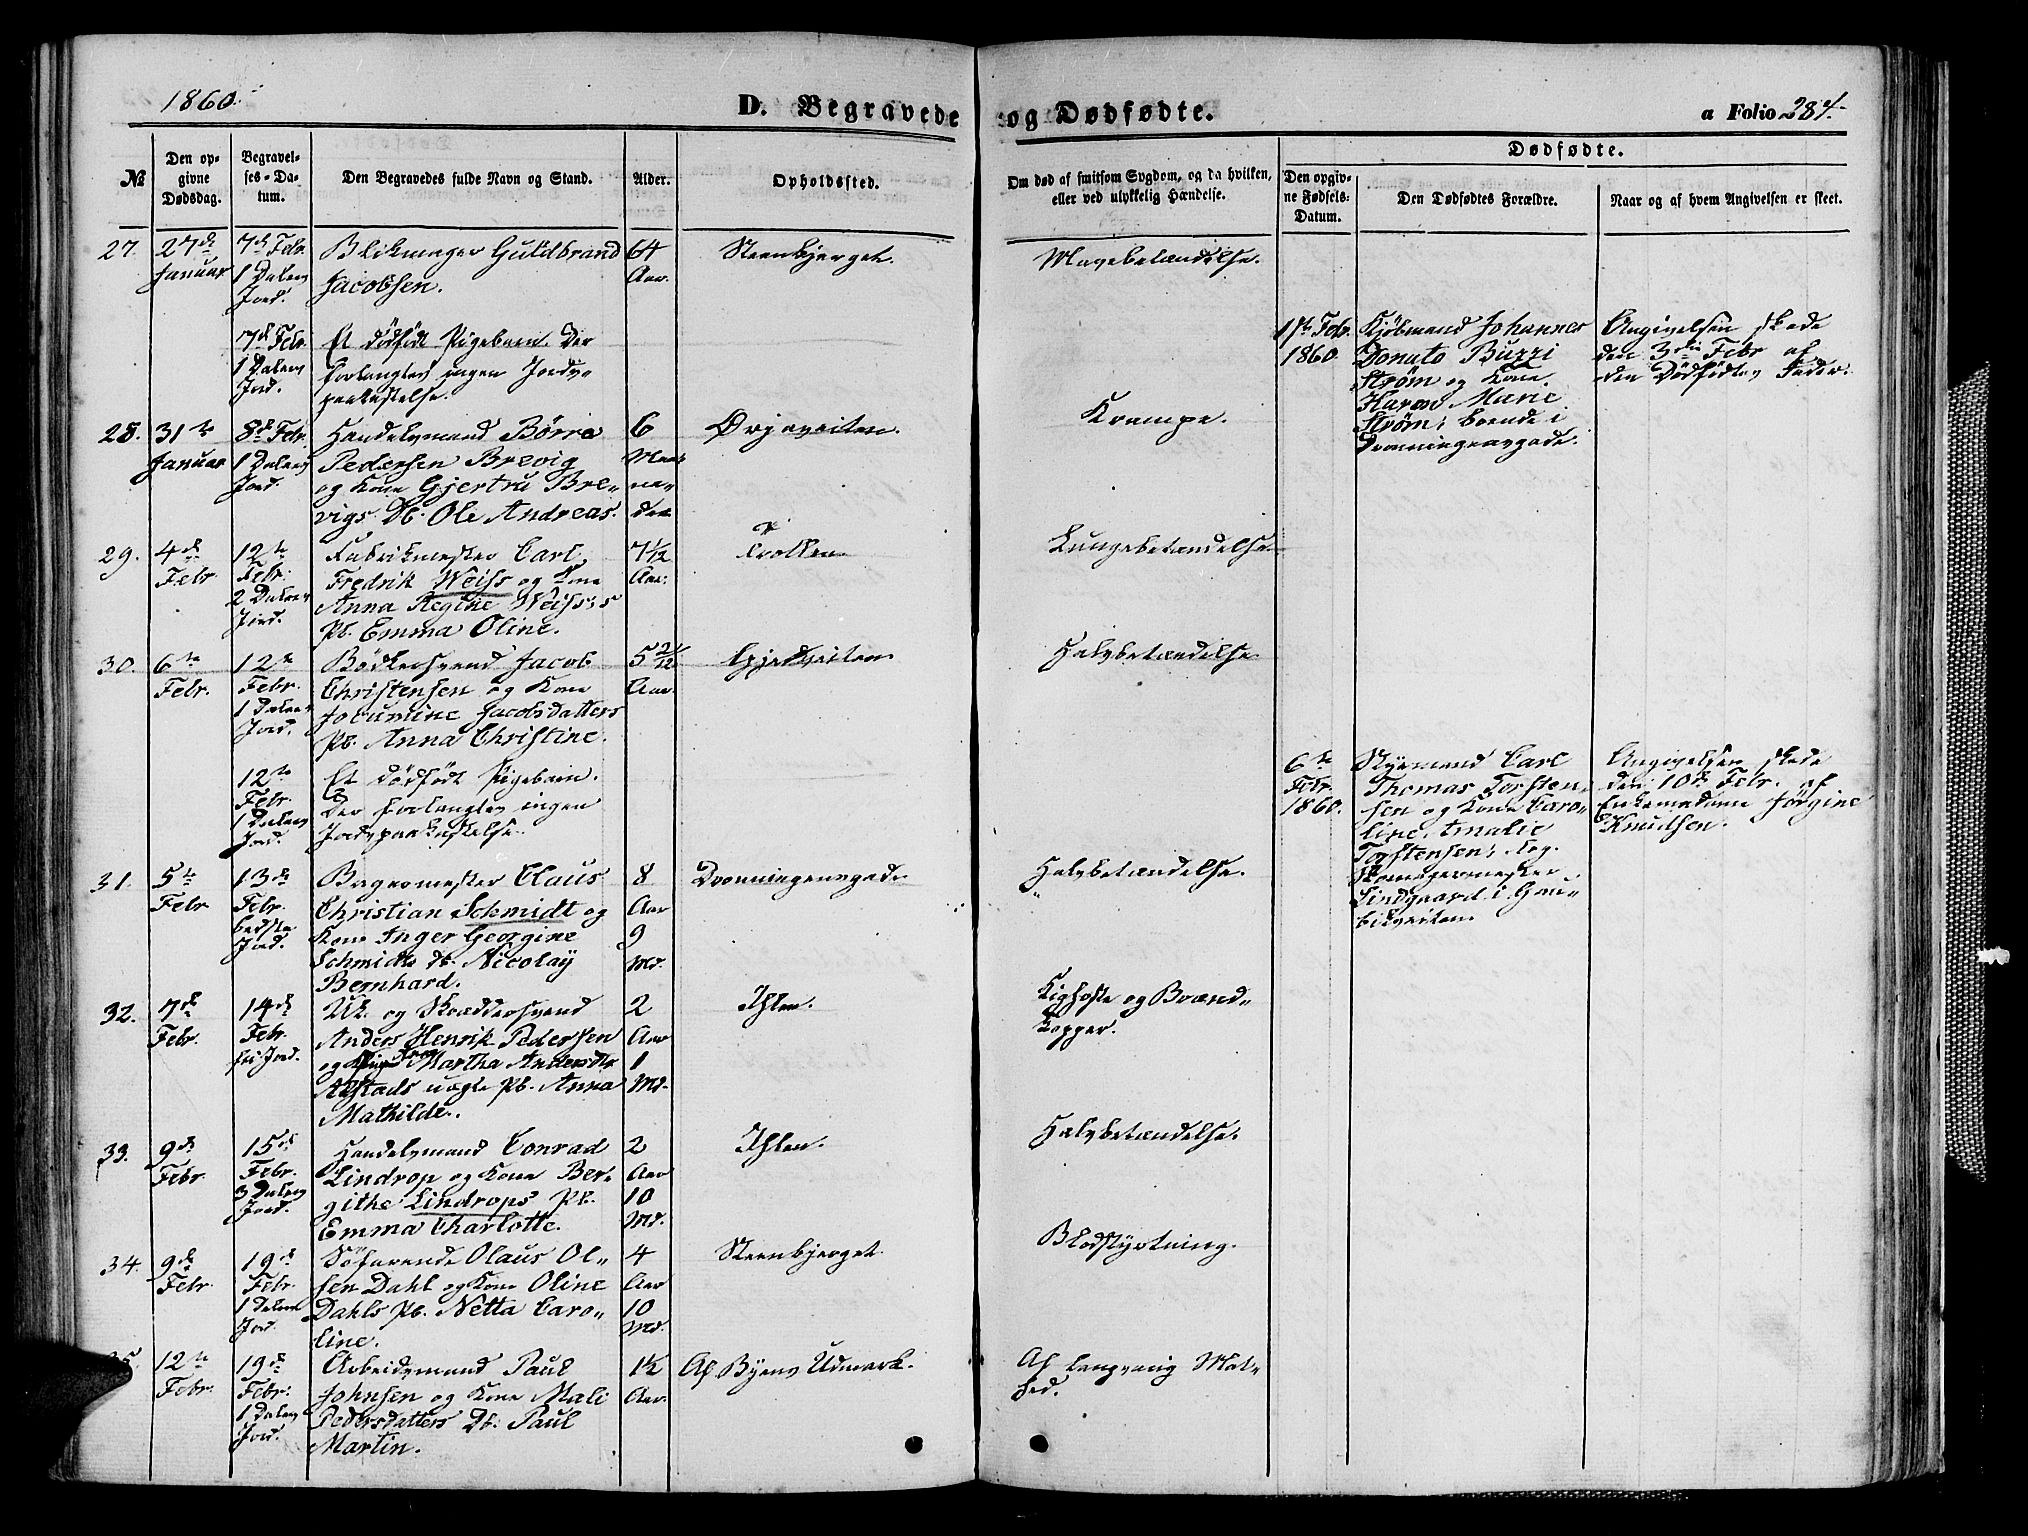 1860.
D. Begravede og Dødfødte.
a Folio 284.
№
Den opgivne Dødsdag.
Begravelses-Datum.
Den Begravedes fulde Navn og Stand.
Alder.
Opholdssted.
Om død af smitsom Sygdom, og da hvilken,
eller ved ulykkelig Hændelse.
Dødfødte.
Den opgivne Fødsels-Datum.
Den Dødfødtes Forældre.
Naar og af hvem Angivelsen er skeet.
27.
27de
Januar
7de Febr.
1 Dalers
Jord.
Blikmager Guldbrand
Jacobsen.
64
Aar.
Steenbjerget.
Mavebetændelse.
7de Febr
1 Dalers
Jord.
Et dødfødt Pigebarn. Der
forlangtes ingen Jords-
paakastelse.
1ste Febr.
1860.
Kjøbmand Johannes
Donato Buzzi
Strøm og Kone
Karen Marie
Strøm, boende i
Dronningensgade.
Angivelsen skede
den 3die Febr af
den Dødfødtes Fader.
28.
31te
Januar
8de Febr.
1 Dalers
Jord.
Handelsmand Børre
Pedersen Brevig
og Kone Gjertru Bre-
vigs Db. Ole Andreas.
6
Maa-
ne-
der
Ørjaveiten.
Krampe.
29.
4de
Febr
12te
Febr.
2 Dalers
Jord.
Fabrikmester Carl
Fredrik Weiss og Kone
Anna Regine Weiss's
Pb. Emma Oline.
7 1/12
Aar.
Trolken
Lungebetændelse
30.
6te
Febr.
12te
Febr.
1 Dalers
Jord.
Bødkersvend Jacob
Christensen og Kone
Jocumine Jacobsdatters
Pb. Anna Christine.
5 2/12
Aar.
Gjedveiten
Halsbetændelse
12te
Febr.
1 Dalers
Jord.
Et dødfødt Pigebarn.
Der forlangtes ingen
Jordspaakastelse.
6te
Febr.
1860.
Styrmand Carl
Thomas Torsten-
sen og Kone Caro-
line Amalie
Torstensen, log.
Skomagermester
Lindgaard i Gau-
bikveiten.
Angivelsen skede
den 10de Febr. af
Enkemadame Jørgine
Knudsen.
31.
5te
Febr
13de
Febr.
bedste
Jord.
Bagermester Claus
Christian Schmidt og
Kone Inger Georgine
Schmidts Db. Nicolay
Bernhard.
8
Aar
9
Md.
Dronningensgade
Halsbetændelse.
32.
7de
Febr.
14de
Febr.
fri Jord.
Uk. og Skræddersvend
Anders Henrik Pedersen
og Pige Martha Andersdtr
Alstads uægte Pb. Anna
Mathilde.
2
Aar
1
Md.
Ihlen.
Kighoste og Brænd-
kopper.
33.
9de
Febr
15de
Febr.
3 Dalers
Jord.
Handelsmand Conrad
Lindrop og Kone Ber-
githe Lindrops Pb.
Emma Charlotte.
2
Aar
10
Md.
Ihlen.
Halsbetændelse.
34.
9de
Febr
19de
Febr.
1 Dalers
Jord.
Søfarende Olaus Ol-
sen Dahl og Kone Oline
Dahls Pb. Netta Caro-
line.
4
Aar
10
Md.
Steenbjerget.
Blodstyrtning.
35.
12te
Febr.
19de
Febr.
1 Dalers
Jord.
Arbeidsmand Paul
Johnsen og Kone Mali
Pedersdatters Db. Paul
Martin.
1½
Aar.
Af Byens Udmark.
Af langvarig Mat-
hed.